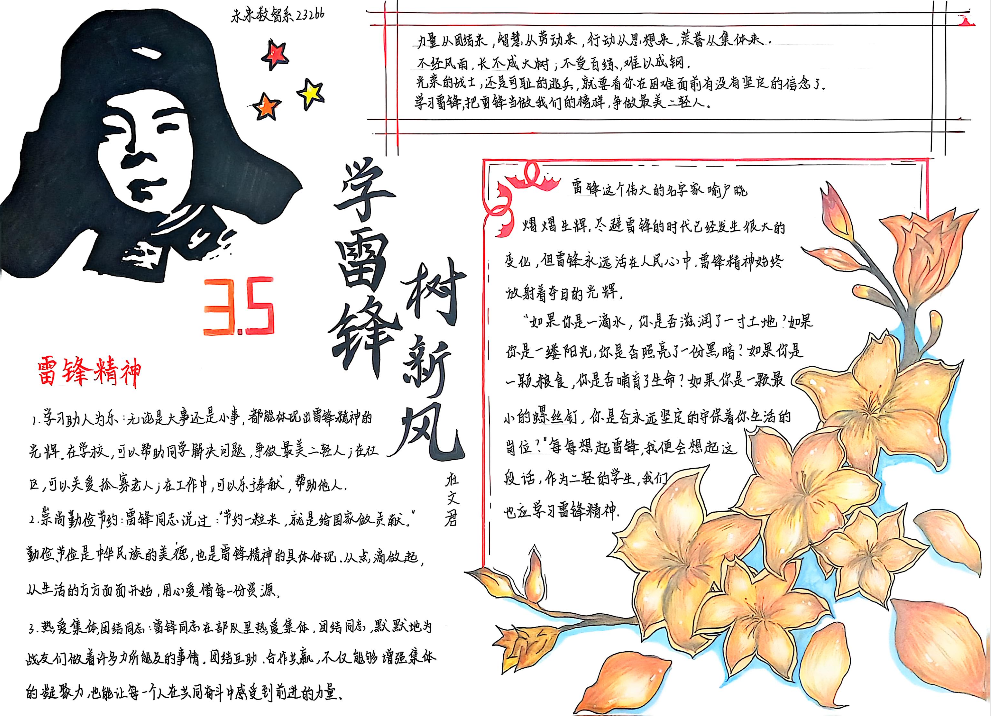 未来教智系23266
力量从团结来，智慧从劳动来，行动从思想来，荣誉从集体来．
不经风雨，长不成大树；不受百炼，难以成钢．
光荣的战士，还是可耻的逃兵，就要看你在困难面前有没有坚定的信念了．
学习雷锋，把雷锋当做我们的榜样，争做最美二轻人．
学雷锋
树新风
杜文君
3.5
雷锋精神
1.学习助人为乐：无论是大事还是小事，都能体现出雷锋精神的
光辉．在学校，可以帮助同学解决问题，争做最美二轻人；在社
区，可以关爱孤寡老人；在工作中，可以乐于奉献，帮助他人．
2.崇尚勤俭节约：雷锋同志说过："节约一粒米，就是给国家做贡献．"
勤俭节俭是中华民族的美德，也是雷锋精神的具体体现．从点滴做起，
从生活的方方面面开始，用心爱惜每一份资源．
3.热爱集体团结同志：雷锋同志在部队里热爱集体，团结同志，默默地为
战友们做着许多力所能及的事情．团结互助．合作共赢，不仅能够增强集体
的凝聚力，也能让每一个人在共同奋斗中感受到前进的力量．
雷锋这个伟大的名字家喻户晓
熠熠生辉，尽避雷锋的时代已经发生很大的
变化，但雷锋永远活在人民心中．雷锋精神始终
放射着夺目的光辉．
"如果你是一滴水，你是否滋润了一寸土地？如果
你是一缕阳光，你是否照亮了一份黑暗？如果你是
一颗粮食，你是否哺育了生命？如果你是一颗最
小的螺丝钉，你是否永远坚定的守保着你生活的
岗位？"每每想起雷锋，我便会想起这
段话，作为二轻的学生，我们
也应学习雷锋精神．